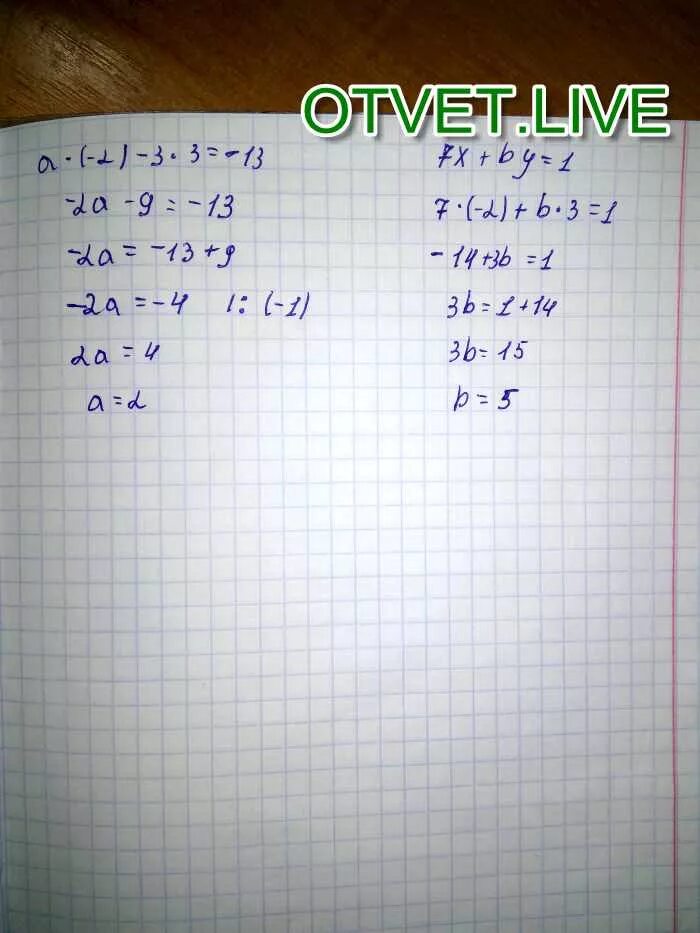 OTVET.LIVE
a · (-2) - 3 · 3 = -13
-2a - 9 = -13
-2a = -13 + 9
-2a = -4 |: (-1)
2a = 4
a = 2
7x + by = 1
7 · (-2) + b · 3 = 1
-14 + 3b = 1
3b = 1 + 14
3b = 15
b = 5